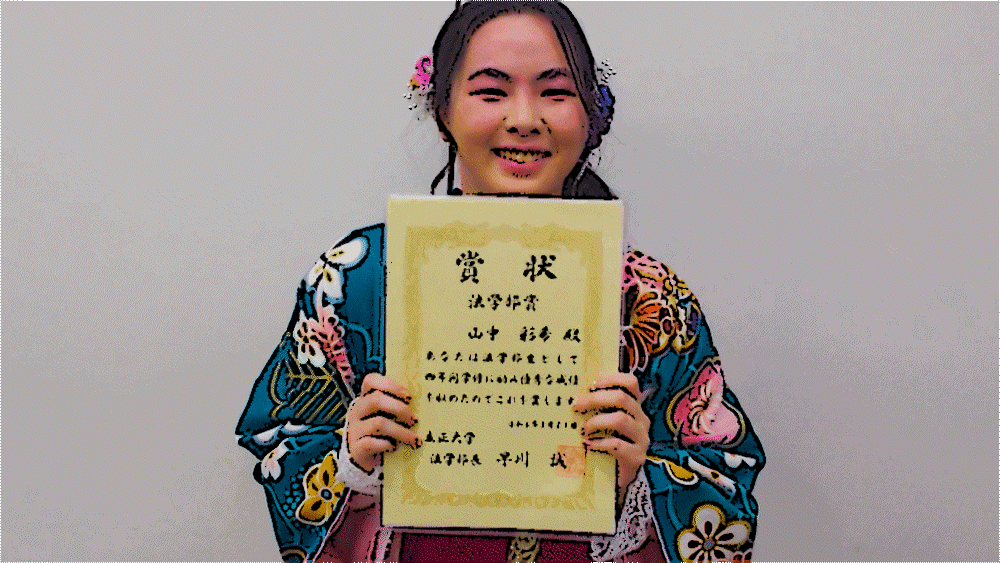 賞状
法学部賞
山中 彩希 殿
あなたは法学部生として
四年間学修に励み優秀な成績
を収めたのでこれを賞します
立正大学
法学部長 早川 誠